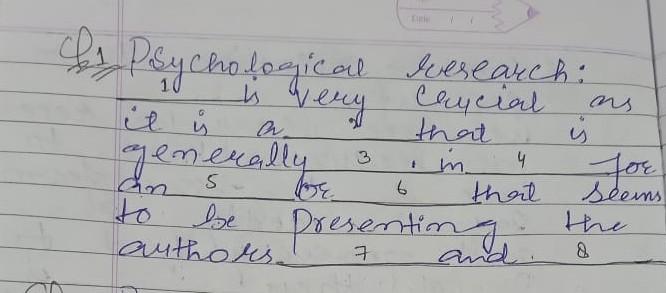 Date / /
Q1 Psychological research:
1 is very crucial as
it is a 2 that is
generally 3 . in 4 for
an 5 or 6 that seems
to be presenting the
authors 7 and 8